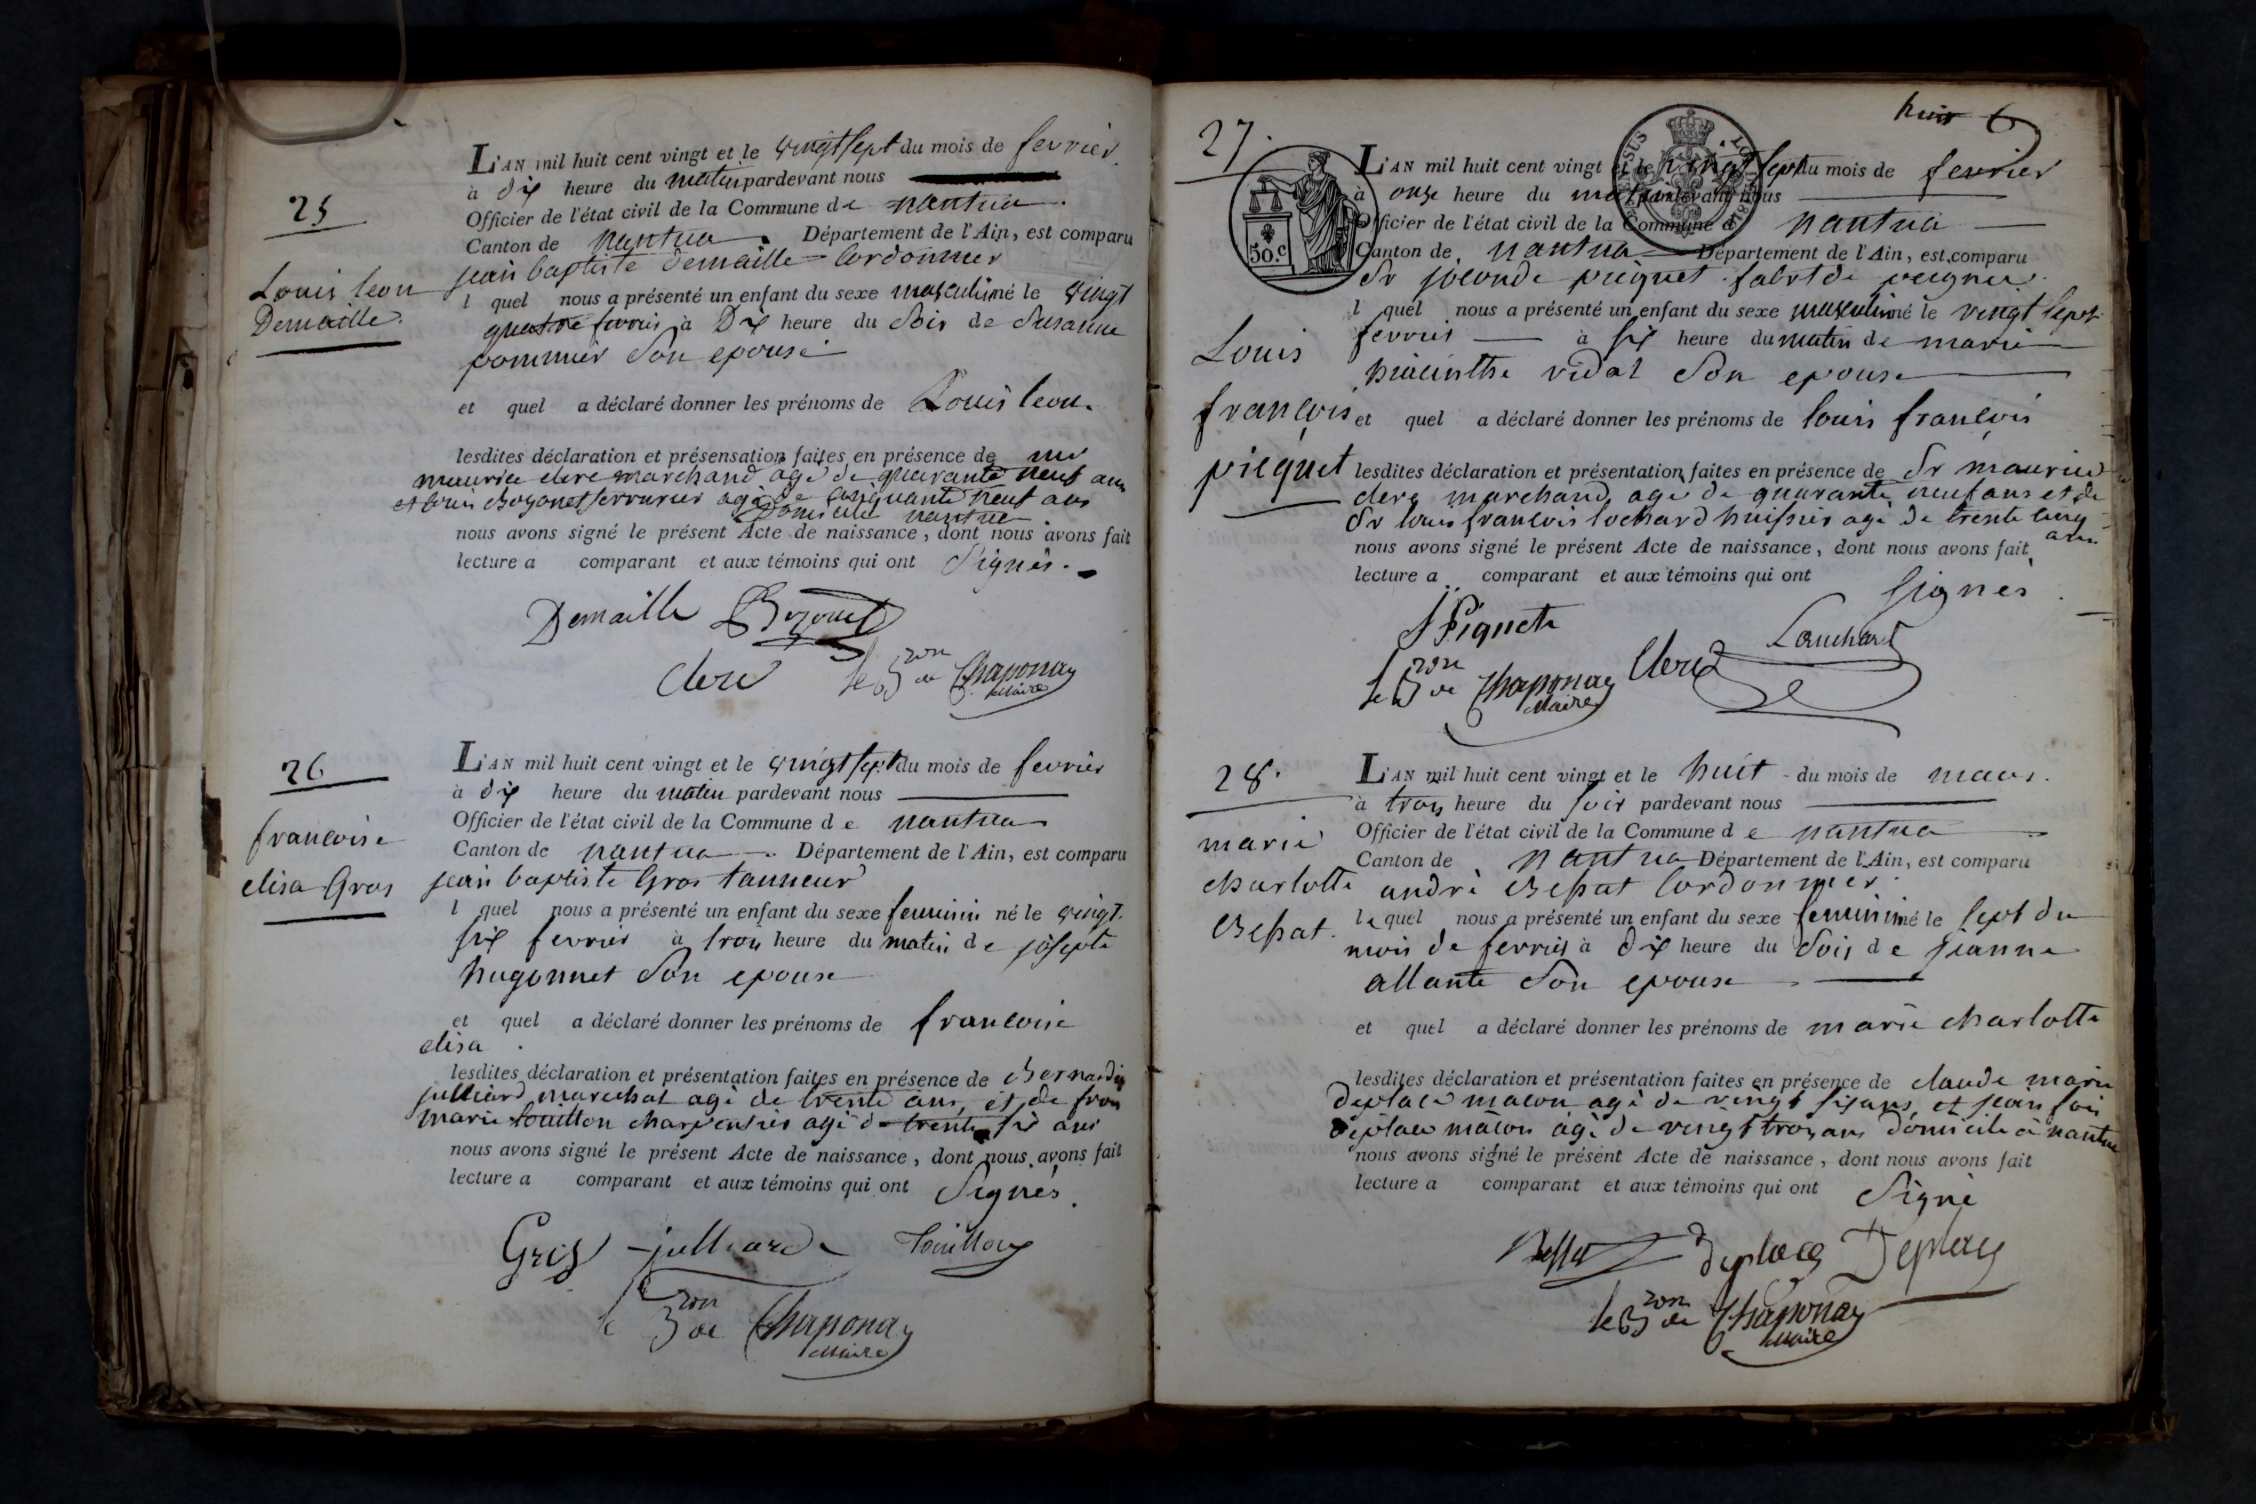 25
Louis leon
Demaille.
L'AN mil huit cent vingt et le vingt sept du mois de fevrier.
à dix heure du matin pardevant nous
Officier de l'état civil de la Commune de nantua.
Canton de nantua. Département de l'Ain, est comparu
jean baptiste Demaille Cordonnier
l quel nous a présenté un enfant du sexe masculin né le vingt
quatre fevrier à Dix heure du Soir de Susanne
pommier Son epouse
et quel a déclaré donner les prénoms de Louis leon.
lesdites déclaration et présensation faites en présence de mr
maurice clerc marchand agé de quarante neuf ans
et louis Bozonet serrurier agé de cinquante neuf ans
Domicilié nantua
nous avons signé le présent Acte de naissance, dont nous avons fait
lecture a comparant et aux témoins qui ont Signés.
Demaille Bozonet
Clerc le Bon de Chaponay
Maire
26
francoise
elisa Gros
L'AN mil huit cent vingt et le vingt sept du mois de fevrier
à dix heure du matin pardevant nous
Officier de l'état civil de la Commune de nantua
Canton de nantua. Département de l'Ain, est comparu
jean baptiste Gros tanneur
l quel nous a présenté un enfant du sexe feminin né le vingt
six fevrier à trois heure du matin de josepte
hugonnet Son epouse
et quel a déclaré donner les prénoms de francoise
elisa.
lesdites déclaration et présentation faites en présence de Bernardin
julliard marechal agé de trente ans, et de fron
marie touillon charpentier agé de trente six ans
nous avons signé le présent Acte de naissance, dont nous avons fait
lecture a comparant et aux témoins qui ont Signés.
Gros julliard touillon
le Bon de Chaponay
Maire
huit 6
27.
50.c
Louis
françois
picquet
L'AN mil huit cent vingt et le vingt sept du mois de fevrier
à onze heure du matin pardevant nous
Officier de l'état civil de la Commune d nantua
Canton de nantua Département de l'Ain, est comparu
Sr joconde picquet fabrt de peignes
l quel nous a présenté un enfant du sexe masculin né le vingt sept
fevrier à six heure du matin de marie
hiacinthe vidal Son epouse
et quel a déclaré donner les prénoms de louis françois
lesdites déclaration et présentation faites en présence de Sr maurice
clerc marchand, agé de quarante neuf ans et de
Sr louis françois lochard huissier agé de trente cinq
ans
nous avons signé le présent Acte de naissance, dont nous avons fait
lecture a comparant et aux témoins qui ont
Signés.
J Piquet
Clerc Louchard
le Bon de Chaponay
Maire
28.
marie
charlotte
Bessat.
L'AN mil huit cent vingt et le huit du mois de mars.
à trois heure du soir pardevant nous
Officier de l'état civil de la Commune de nantua
Canton de nantua Département de l'Ain, est comparu
andré Bessat Cordonnier.
lequel nous a présenté un enfant du sexe feminin né le sept du
mois de fevrier à dix heure du Soir de jeanne
allante Son epouse
et quel a déclaré donner les prénoms de marie charlotte
lesdites déclaration et présentation faites en présence de claude marie
Deplace macon agé de vingt six ans, et jean fois
Deplace macon agé de vingt trois ans domicile à nantua
nous avons signé le présent Acte de naissance, dont nous avons fait
lecture a comparant et aux témoins qui ont Signé
Bessat deplace Deplace
le Bon de Chaponay
Maire